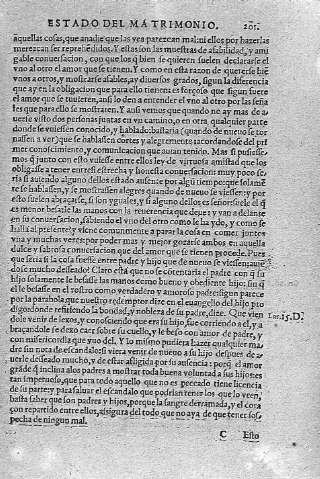 ESTADO DEL MATRIMONIO. 201.
aquellas cosas, que anadie que las vea parezcan mal: ni ellos por hazerlas
merezcan ser reprehẽdidos. Y estas son las muestras de afabilidad, y ami
gable conuersacion, con que los q̃ bien se quieren suelen declararse el
vno al otro el amor que se tienen. Y como en esta razon de quererse biẽ
vnos a otros, y mostrarse afables, ay diuersos grados, sigun la diferencia
que ay en la obligacion que para ello tienen: es forçoso que sigun fuere
el amor que se tuuieren, ansi lo den a entender el vno al otro por las seña
les que para ello se mostraren. Y ansi vemos que quando no ay mas de a
uerse visto dos personas juntas en vn camino, o en otra qualquier parte
donde se vuiessen conocido, y hablado: bastaria (quando de nueuo se tor
nassen a ver) que se hablassen cortes y alegremente acordandose del pri
mer conoscimiento, y comunicacion que auian tenido. Mas si pusiesse-
mos q̃ junto con esto vuiesse entre ellos ley de virtuosa amistad que los
obligasse a tener entre si estrecha y honesta conuersacion: muy poco se
ria si auiendo alguno dellos estado ausente por algũ tiempo: que solamẽ
te se hablassen, y se mostrassen alegres quando de nueuo se viessen: y por
esto suelen abraçarse, si son yguales, y si alguno dellos es señor suele el q̃
es menor besarle las manos con la reuerencia que deue: y van a delante
en su conuersacion, sabiendo el vno del otro como le ha ydo, y como se
halla al presente: y viene comunmente a parar la cosa en comer juntos
vna y muchas vezes: por poder mas y mejor gozarse ambos en aquella
dulce y sabrosa conuersacion que del amor que se tienen procede. Pues
que seria si la cosa fuesse entre padre y hijo que de nueuo se viessen auiẽ
dose mucho desseado? Claro està que no se cõtentaria el padre con q̃ su
hijo solamente le besasse las manos como bueno y obediente hijo: sin q̃
el le besasse en el rostro como verdadero y amoroso padre: sigun parece
por la parabola que nuestro redemptor dize en el euangelio del hijo pro
digo: donde refiriendo la bondad, y nobleza de su padre, dize. Que vien
dole venir de lexos, y conosciendo que era su hijo, fue corriendo a el, y a
braçandole se dexo caer sobre su cuello, y le beso con amor de padre, y
con misericordia que vuo del. Y lo mismo pudiera hazer qualquier ma
dre sin nota de escandalo: si viera venir de nueuo a su hijo despues de a-
uerle desseado mucho, y de estar afligida por su ausencia: porq̃ el amor
grãde q̃ inclina alos padres a mostrar toda buena voluntad a sus hijos es
tan impetuoso, que para todo aquello que no es peccado tiene licencia
de su parte: y para saluar el escandalo que podrian tener los que lo veen,
basta saber que son padres y hijos, porque la sangre derramada, y el cora
çon repartido entre ellos, assigura del todo que no aya de que tener sos-
pecha de ningun mal.
Luc. 15. D.
C Esto